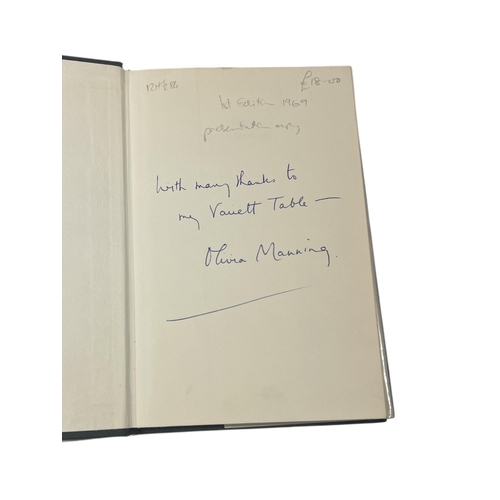 £18-00
1st Edition 1969
presentation copy
With many thanks to
my Table —
Olivia Manning.